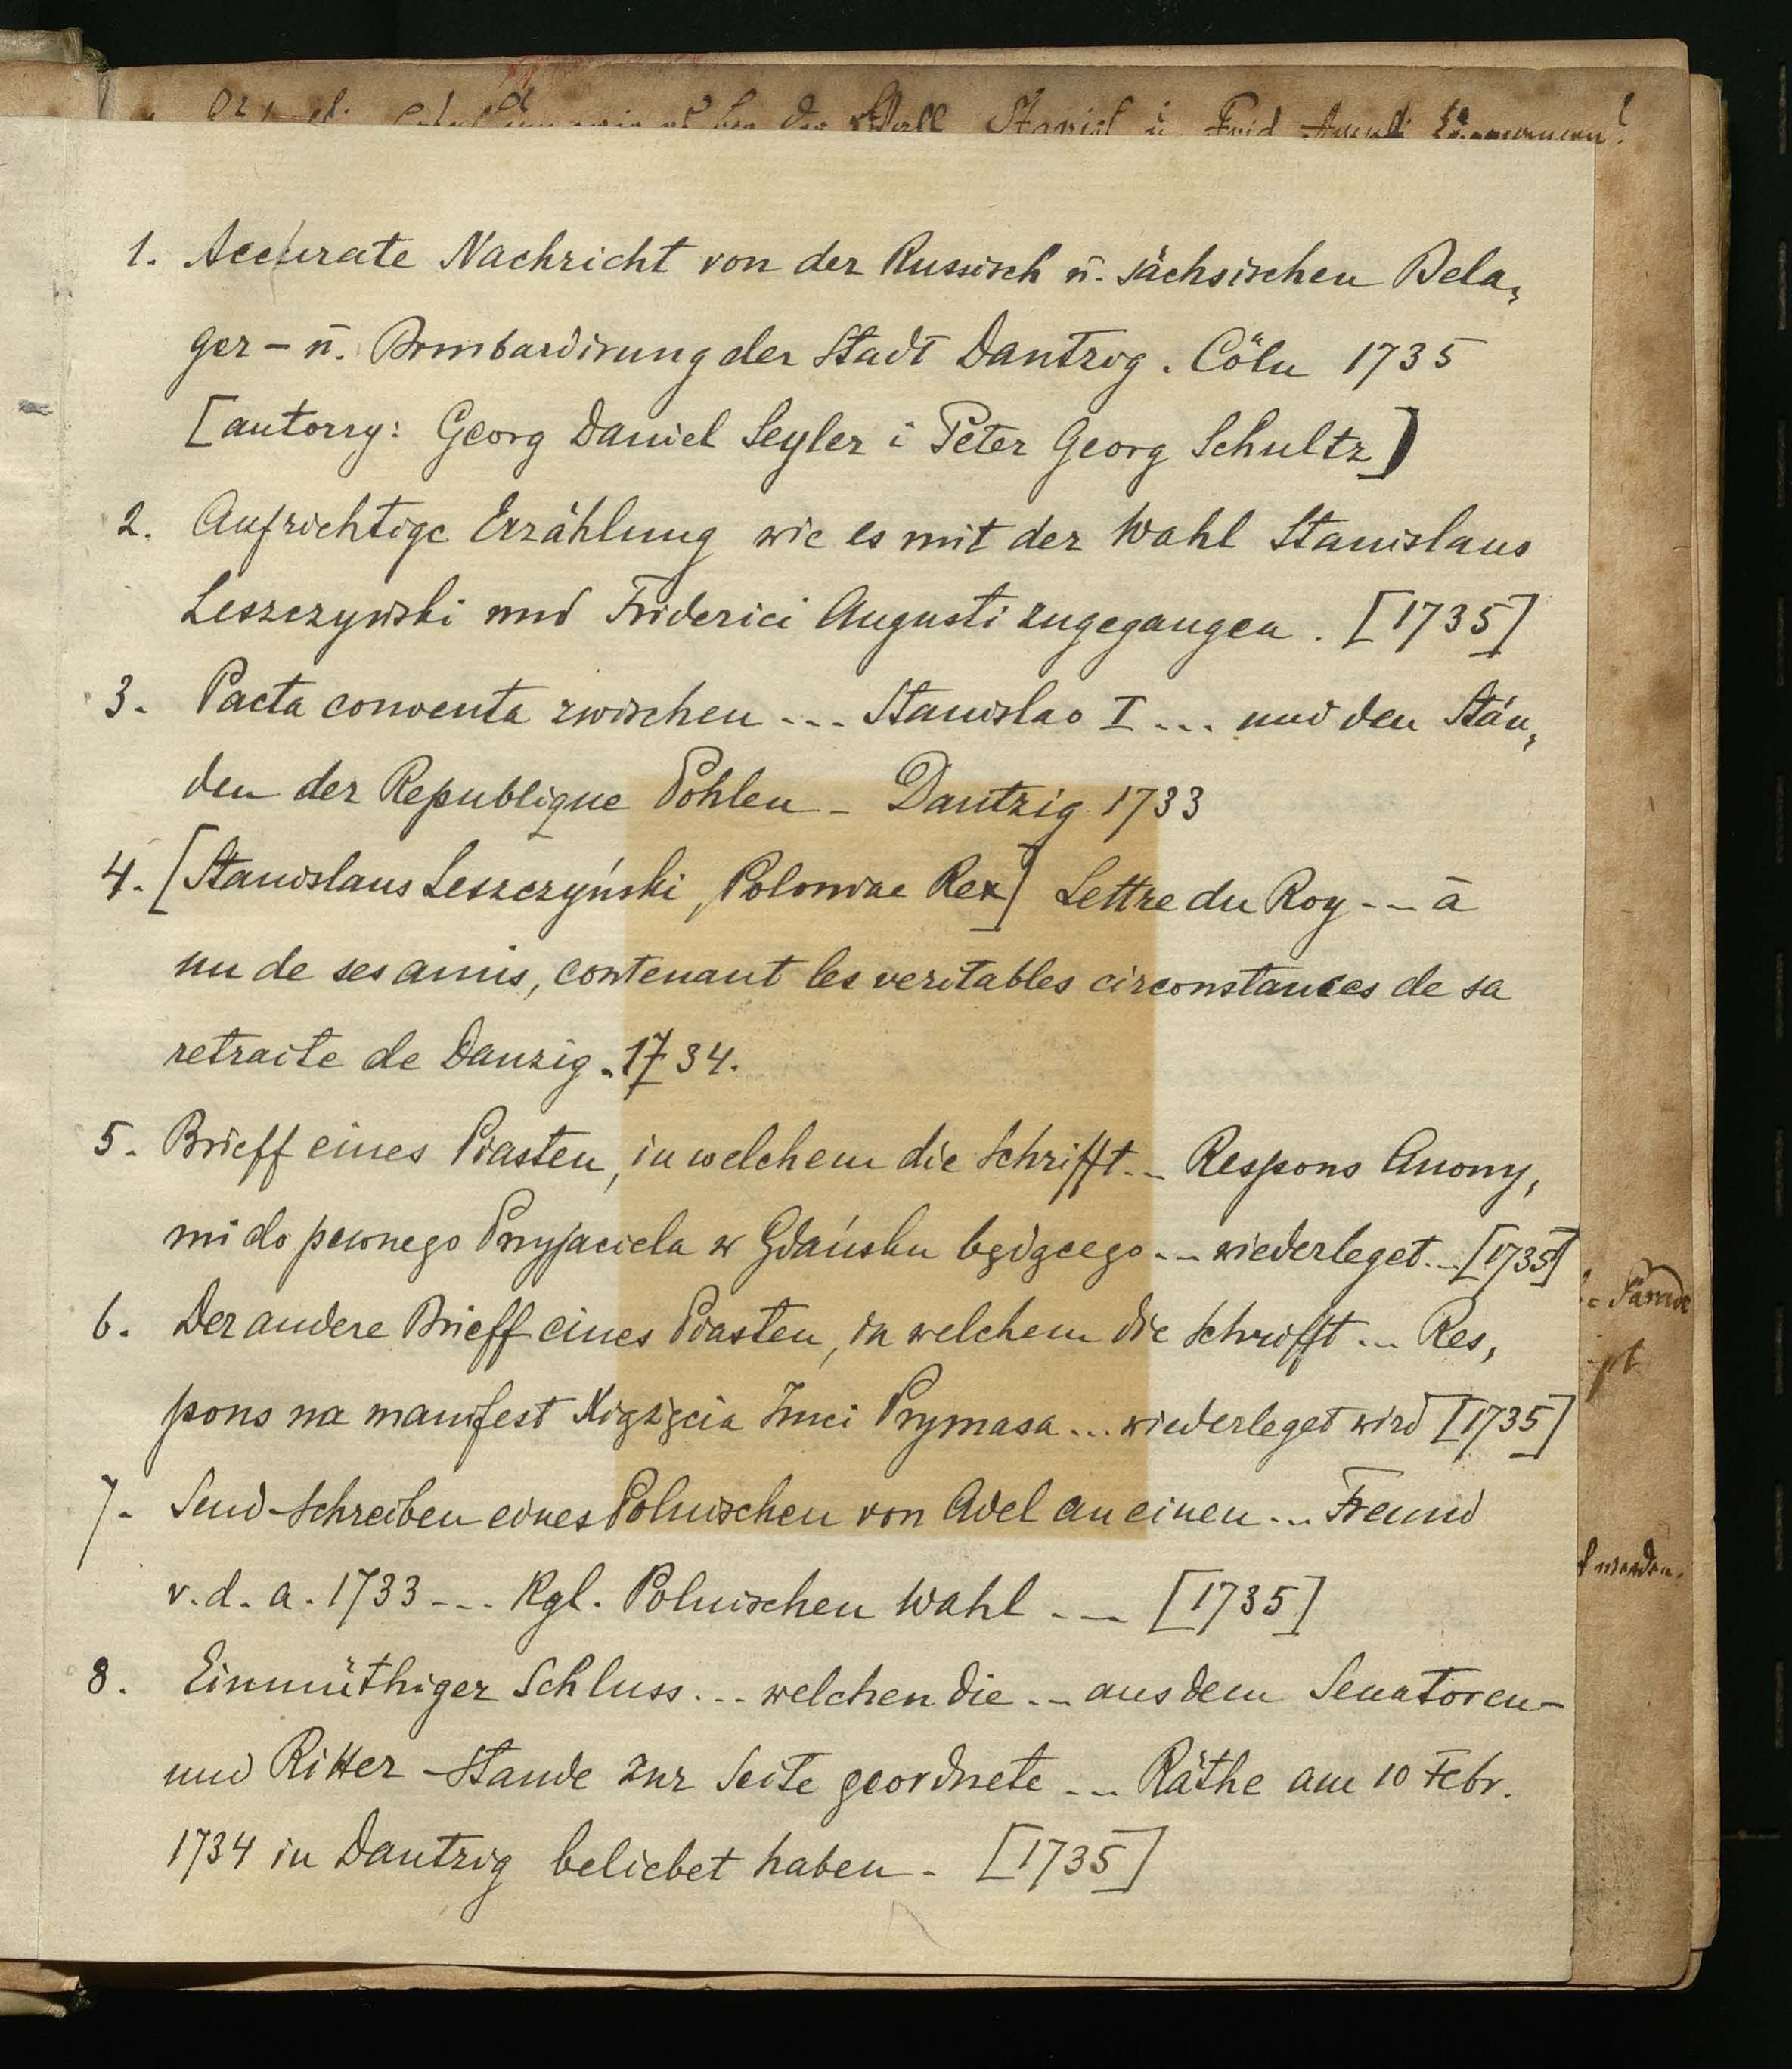 1. Accurate Nachricht von der Russisch ū. sächsischen Bela,
ger – ū. Bombardirung der Stadt Dantzig. Cöln 1735
[autorzy: Georg Daniel Seyler i Peter Georg Schultz]
2. Aufrichtige Erzählung wie es mit der Wahl Stanislaus
Leszczynski und Friderici Augusti zugegangen. [1735]
3. Pacta conventa zwischen --- Stanislao I --- und den Stän,
den der Republique Pohlen – Dantzig 1733
4. [Stanislaus Leszczyński, Poloniae Rex] Lettre du Roy --- à
un de ses amis, contenant les veritables circonstances de sa
retraite de Danzig. 1734.
5. Brieff eines Piasten, in welchem die Schrifft -- Respons Anony,
mi do pewnego Przyjaciela w Gdańsku będącego --- wiederleget -- [1735]
6. Der andere Brieff eines Piasten, in welchem die Schrifft --- Res,
pons na manifest Xiążęcia Jmci Prymasa --- wiederleget wird [1735]
7. Send-Schreiben eines Polnischen von Adel an einen --- Freund
v. d. a. 1733 --- Kgl. Polnischen Wahl --- [1735]
8. Einmüthiger Schluss --- welchen die --- aus dem Senatoren-
und Ritter-Stande zur Seite geordnete --- Räthe am 10 Febr.
1734 in Dantzig beliebet haben – [1735]
werden.